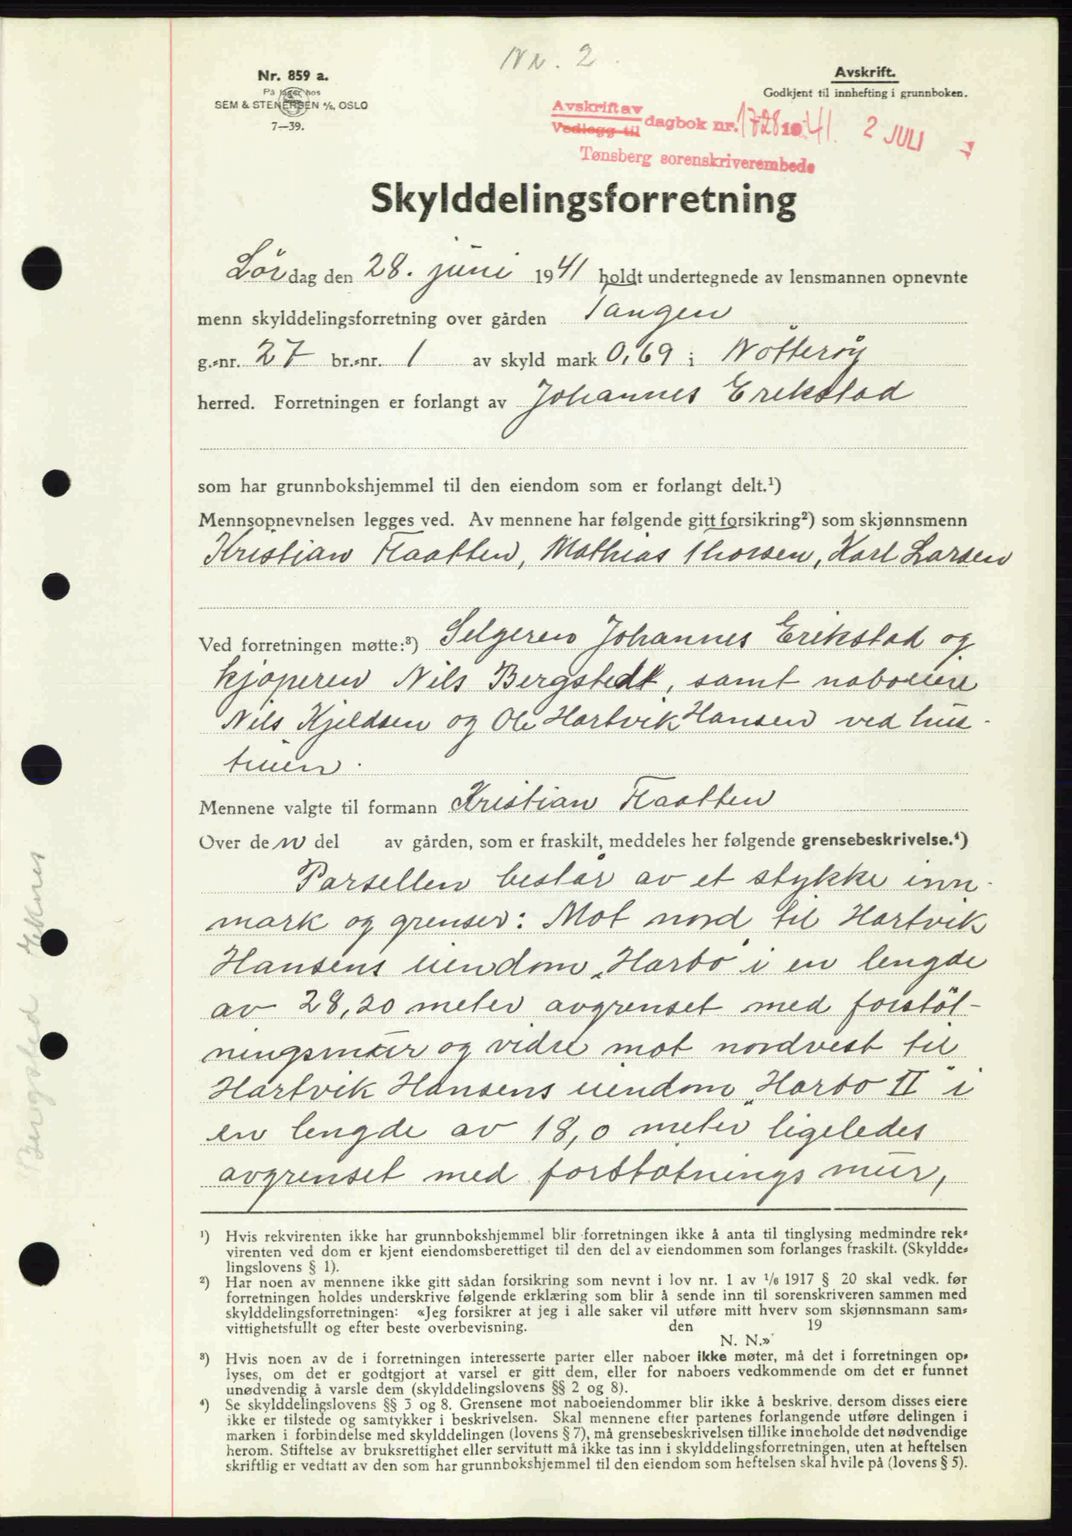 Nr. 2.
Nr. 859 a.
På lager hos
SEM & STENERSEN A/S, OSLO
7—39.
Avskrift.
Godkjent til innhefting i grunnboken.
Avskrift av
Vedlegg til dagbok nr. 1728 1941. 2 JULI
Tønsberg sorenskriverembede
Skylddelingsforretning
Lørdag den 28. juni 1941 holdt undertegnede av lensmannen opnevnte
menn skylddelingsforretning over gården Tangen
g.-nr. 27 br.-nr. 1 av skyld mark 0,69 i Nøtterøy
herred. Forretningen er forlangt av Johannes Erikstad
som har grunnbokshjemmel til den eiendom som er forlangt delt.¹)
Mennsopnevnelsen legges ved. Av mennene har følgende gitt forsikring²) som skjønnsmenn
Kristian Flaatten, Mathias Thorsen, Karl Larsen
Ved forretningen møtte:³) Selgeren Johannes Erikstad og
kjøperen Nils Bergstedt, samt naboeiere
Nils Kjeldsen og Ole Hartvik Hansen ved hus-
truen.
Mennene valgte til formann Kristian Flaatten
Over den del av gården, som er fraskilt, meddeles her følgende grensebeskrivelse.⁴)
Parsellen består av et stykke inn-
mark og grenser: Mot nord til Hartvik
Hansens eiendom „Harbo" i en lengde
av 28,20 meter avgrenset med forstøt-
ningsmur og vidre mot nordvest til
Hartvik Hansens eiendom „Harbo II" i
en lengde av 18,0 meter ligeledes
avgrenset med forstøtnings mur,
¹) Hvis rekvirenten ikke har grunnbokshjemmel blir forretningen ikke å anta til tinglysing medmindre rek-
virenten ved dom er kjent eiendomsberettiget til den del av eiendommen som forlanges fraskilt. (Skyldde-
lingslovens § 1).
²) Har noen av mennene ikke gitt sådan forsikring som nevnt i lov nr. 1 av 1/6 1917 § 20 skal vedk. før
forretningen holdes underskrive følgende erklæring som blir å sende inn til sorenskriveren sammen med
skylddelingsforretningen: «Jeg forsikrer at jeg i alle saker vil utføre mitt hverv som skjønnsmann sam-
vittighetsfullt og efter beste overbevisning. den 19
N. N.»
³) Hvis noen av de i forretningen interesserte parter eller naboer ikke møter, må det i forretningen op-
lyses, om det er godtgjort at varsel er gitt dem, eller for naboers vedkommende om det er funnet
unødvendig å varsle dem (skylddelingslovens §§ 2 og 8).
⁴) Se skylddelingslovens §§ 3 og 8. Grensene mot naboeiendommer blir ikke å beskrive, dersom disses eiere
ikke er tilstede og samtykker i beskrivelsen. Skal mennene efter partenes forlangende utføre delingen i
marken i forbindelse med skylddelingen (lovens § 7), må grensebeskrivelsen tillike inneholde det nødvendige
herom. Stiftelse av bruksrettighet eller servitutt må ikke tas inn i skylddelingsforretningen, uten at heftelsen
skriftlig er vedtatt av den som har grunnbokshjemmel til den eiendom som heftelsen skal hvile på (lovens § 5).